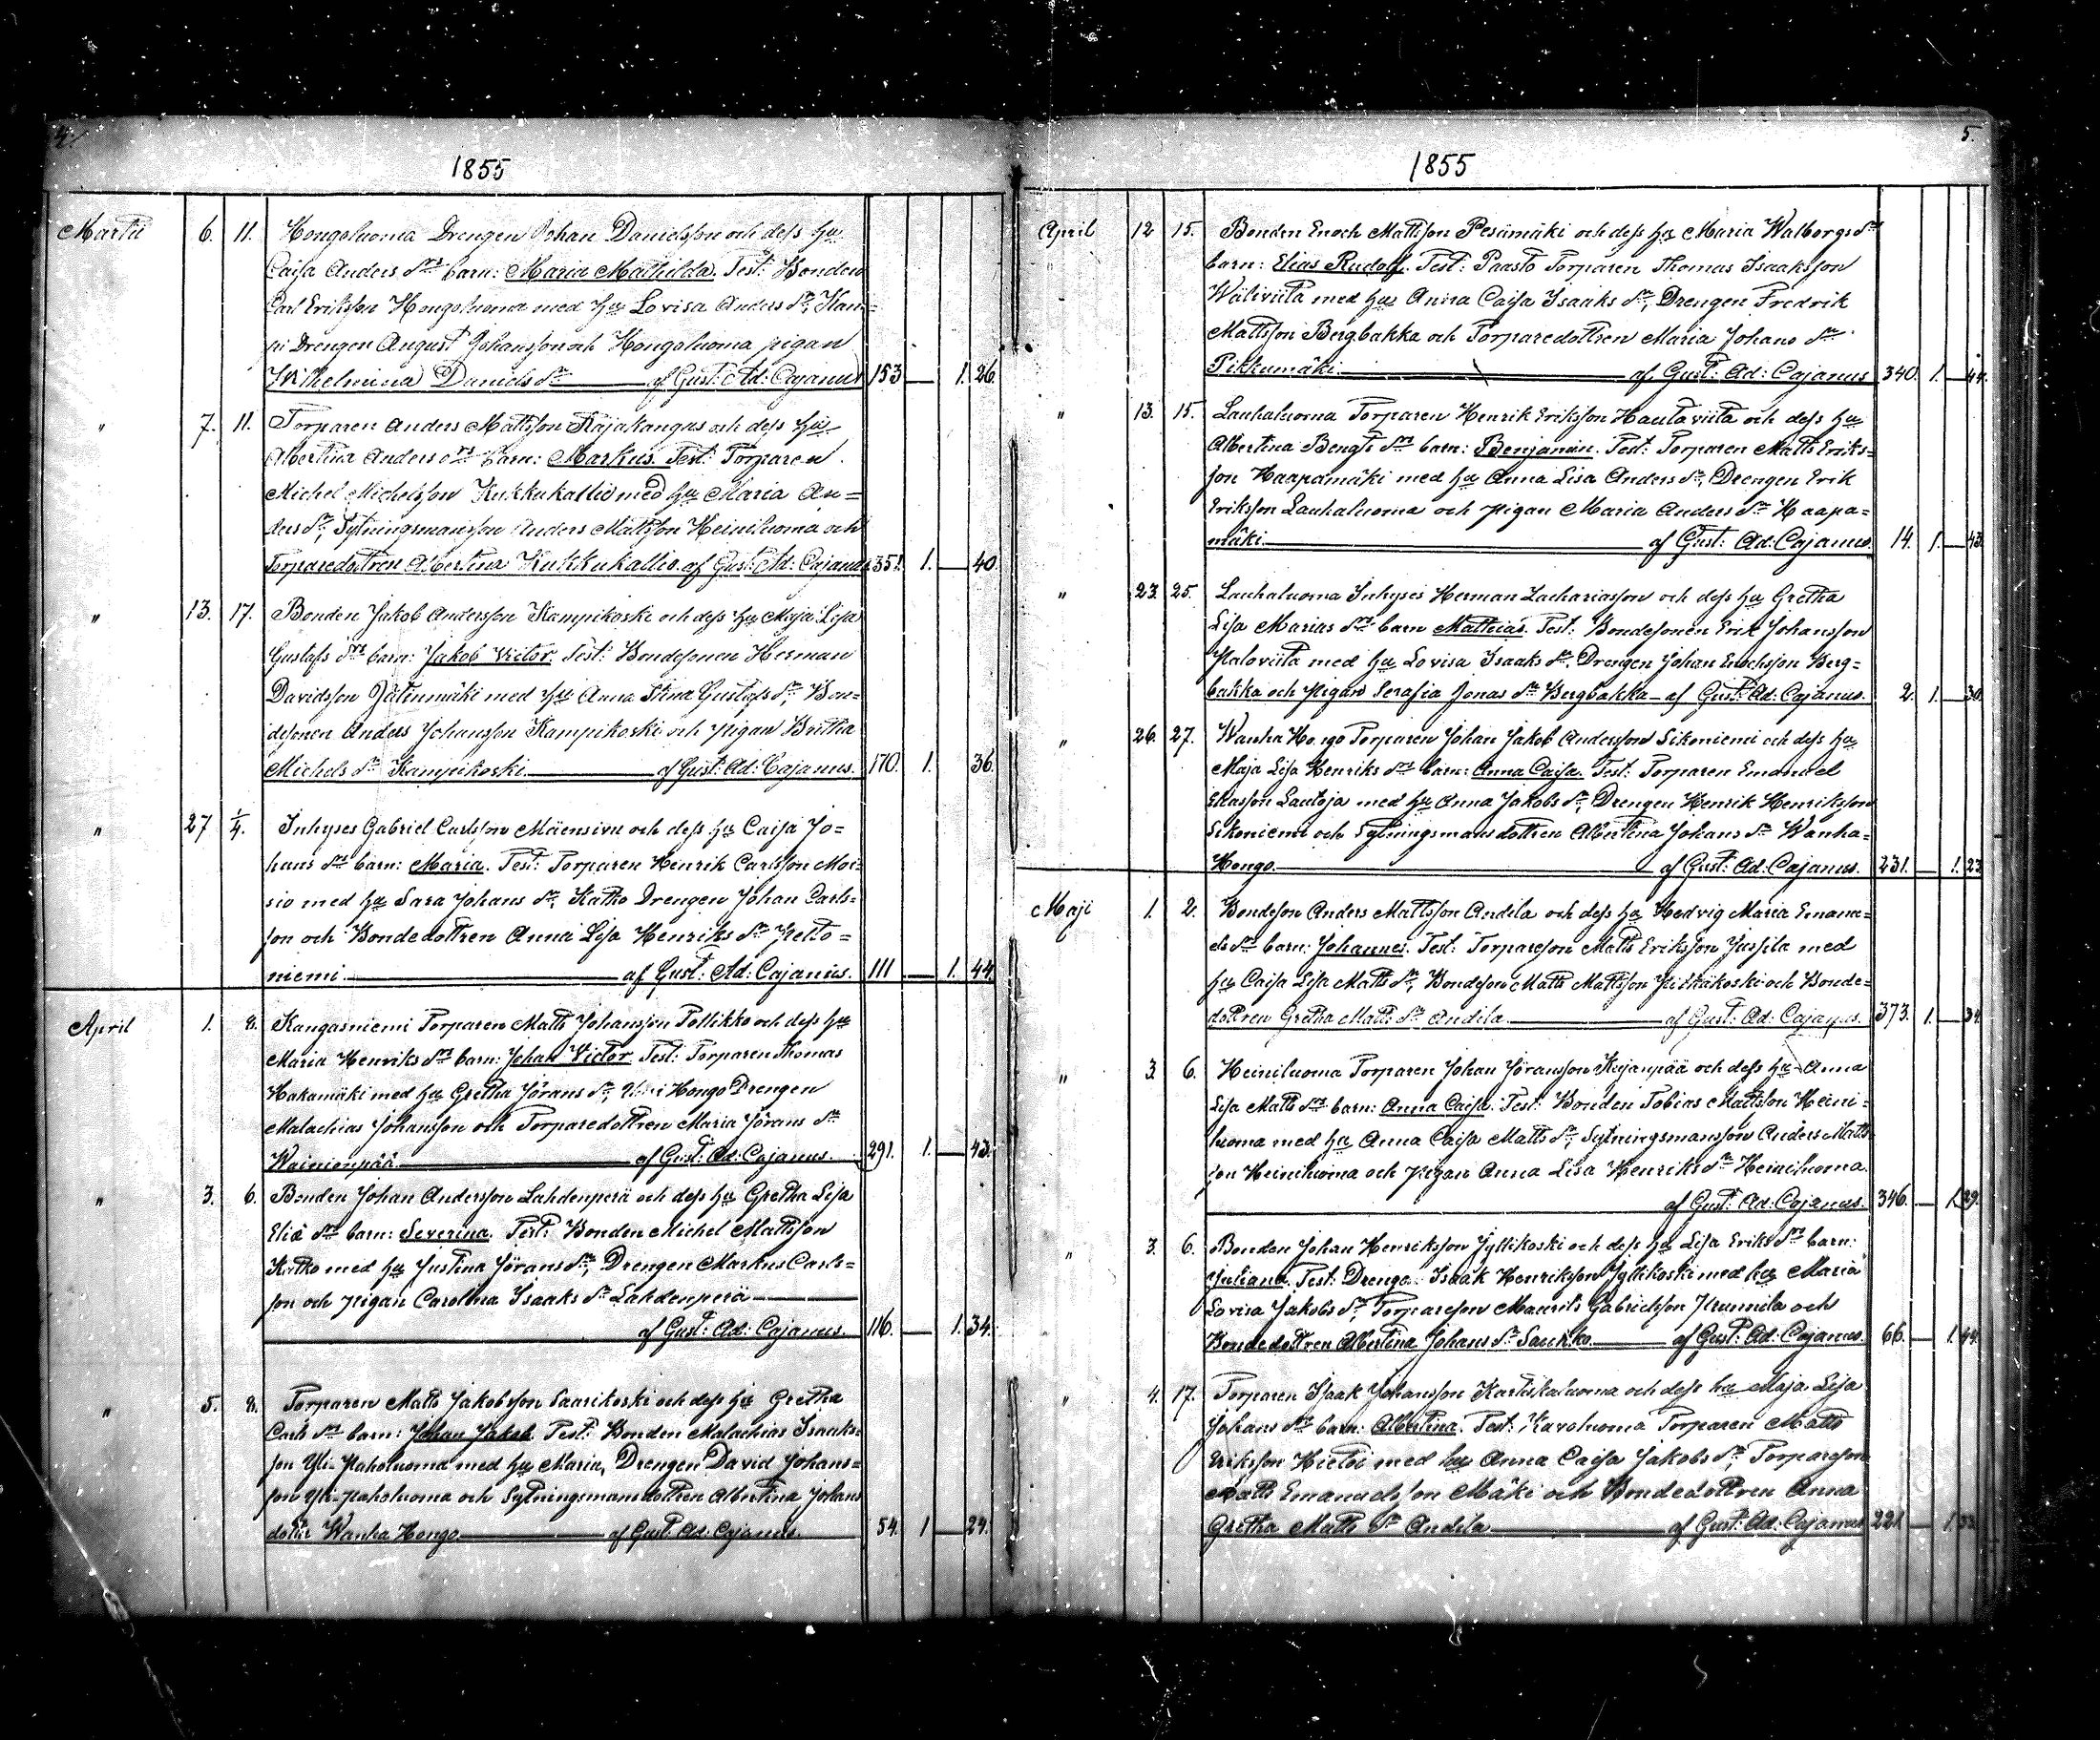 4.
1855
Martii 6. 11. Hongoluoma Drengen Johan Danielsson och dess hu
Caisa Anders drs barn: Maria Mathilda. Test: Bonden
Carl Eriksson Hongoluoma med hu Lovisa Anders dr, Kam-
pi Drengen August Johansson och Hongoluoma pigan
Wilhelmina Daniels dr af Gust: Ad: Cajanus 153 — 1. 26.
" 7. 11. Torparen Anders Mattsson Rajakangus och dess hu
Albertina Anders drs barn: Markus. Test: Torparen
Michel Michelsson Kukkukallio med hu Maria An=
ders dr, Sytningsmansson Anders Mattsson Heiniluoma och
Torparedottren Albertina Kukkukallio. af Gust: Ad: Cajanus 351. 1. — 40.
" 13. 17. Bonden Jakob Andersson Kampikoski och dess hu Maja Lisa
Gustafs drs barn: Jakob Victor. Test: Bondesonen Herman
Davidsson Jätinmäki med hu Anna Stina Gustafs dr, Bon-
desonen Anders Johansson Kampikoski och pigan Britha
Michels dr Kampikoski af Gust: Ad: Cajanus. 170. 1. 36.
" 27 1/4. Inhyses Gabriel Carlsson Mäensivu och dess hu Caisa Jo=
hans drs barn: Maria. Test: Torparen Henrik Carlsson Moi-
sio med hu Sara Johans dr, Katko Drengen Johan Carls-
son och Bondedottren Anna Lisa Henriks dr Jetto=
niemi. af Gust: Ad: Cajanus. 111 — 1. 44.
April 1. 8. Kangasniemi Torparen Matts Johansson Pollikko och dess hu
Maria Henriks drs barn: Johan Victor. Test: Torparen Thomas
Hakamäki med hu Gretha Jörans dr, Hongo Drengen
Malachias Johansson och Torparedottren Maria Jörans dr
Wainionpää af Gust: Ad: Cajanus. 291. 1. — 43.
" 3. 6. Bonden Johan Andersson Lahdenperä och dess hu Gretha Lisa
Eliæ drs barn: Severina. Test: Bonden Michel Mattsson
Katko med hu Justina Jörans dr, Drengen Markus Carls=
son och pigan Carolina Isaaks dr Lahdenperä
af Gust: Ad: Cajanus. 116. — 1. 34.
" 5. 8. Torparen Matts Jakobsson Saarikoski och dess hu Gretha
Carls drs barn: Johan Jakob. Test: Bonden Malachias Isaaks-
son Yli-Paholuoma med hu Maria, Drengen David Johans=
son Yli-Paholuoma och Sytningsmansdottren Albertina Johans
dotter Wanha Hongo af Gust: Ad: Cajanus. 54. 1 — 24.
5.
1855
April 12 15. Bonden Enoch Mattsson Pesämäki och dess hu Maria Walborgs drs
barn: Elias Rudolf. Test: Paasto Torparen Thomas Isaaksson
Wäliviita med hu Anna Caisa Isaaks dr, Drengen Fredrik
Mattsson Bergbakka och Torparedottren Maria Johans dr
Pikkumäki af Gust: Ad: Cajanus 340. 1. — 44.
" 13. 15. Lauhaluoma Torparen Henrik Eriksson Hautaviita och dess hu
Albertina Bengts drs barn: Benjamin. Test: Torparen Matts Eriks=
son Haapamäki med hu Anna Lisa Anders dr, Drengen Erik
Eriksson Lauhaluoma och pigan Maria Anders dr Haapa=
mäki af Gust: Ad: Cajanus. 14. 1. — 43.
" 23. 25. Lauhaluoma Inhyses Herman Zachariasson och dess hu Gretha
Lisa Marias drs barn Matthias. Test: Bondesonen Erik Johansson
Haloviita med hu Lovisa Isaaks dr, Drengen Johan Enochsson Berg=
bakka och pigan Serafia Jonas dr Bergbakka — af Gust: Ad: Cajanus. 2. 1. — 30.
" 26. 27. Wanha Hongo Torparen Johan Jakob Andersson Sikoniemi och dess hu
Maja Lisa Henriks drs barn: Anna Caisa. Test: Torparen Emanuel
Eliasson Lautoja med hu Anna Jakobs dr, Drengen Henrik Henriksson
Sikoniemi och Sytningsmansdottren Albertina Johans dr Wanha=
Hongo af Gust: Ad: Cajanus. 231. — 1. 23
Maji 1. 2. Bondeson Anders Mattsson Andila och dess hu Hedvig Maria Emanu=
els drs barn: Johannes. Test: Torpareson Matts Eriksson Jussila med
hu Caisa Lisa Matts dr, Bondeson Matts Mattsson Pitkäkoski och Bonde=
dottren Gretha Matts dr Andila af Gust: Ad: Cajanus. 373. 1. — 34.
" 3. 6. Heiniluoma Torparen Johan Jöransson Kujanpää och dess hu Anna
Lisa Matts drs barn: Anna Caisa. Test: Bonden Tobias Mattsson Heini=
luoma med hu Anna Caisa Matts dr, Sytningsmansson Anders Matts
son Heiniluoma och pigan Anna Lisa Henriks dr Heiniluoma.
af Gust: Ad: Cajanus. 346. — 1. 29.
" 3. 6. Bonden Johan Henriksson Jyllikoski och dess hu Lisa Eriks drs barn:
Juliana. Test: Drengen Isaak Henriksson Jyllikoski med hu Maria
Lovisa Jakobs dr, Torpareson Maurits Gabrielsson Krunnila och
Bondedottren Albertina Johans dr Saukko af Gust: Ad: Cajanus. 66. — 1. 44.
" 4. 17. Torparen Isaak Johansson Karhiskaluoma och dess hu Maja Lisa
Johans drs barn: Albertina. Test: Kavoluoma Torparen Matts
Eriksson Hietoi med hu Anna Caisa Jakobs dr, Torpareson
Matts Emanuelsson Mäki och Bondedottren Anna
Gretha Matts dr Andila af Gust: Ad: Cajanus 221 — 1.